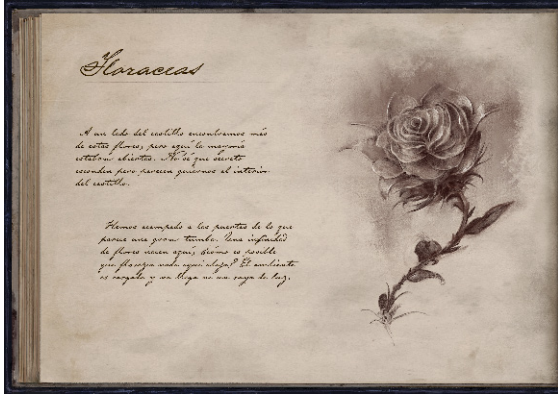 Floraceas
A un lado del castillo encontramos más
de estas flores, pero aquí la mayoría
estaban abiertas. No sé que secreto
esconden pero parecen guiarnos al interior
del castillo.
Hemos acampado a las puertas de lo que
parece una gran tumba. Una infinidad
de flores nacen aquí, ¿cómo es posible
que florezca nada aquí abajo? El ambiente
es cargado y no llega ni un rayo de luz.